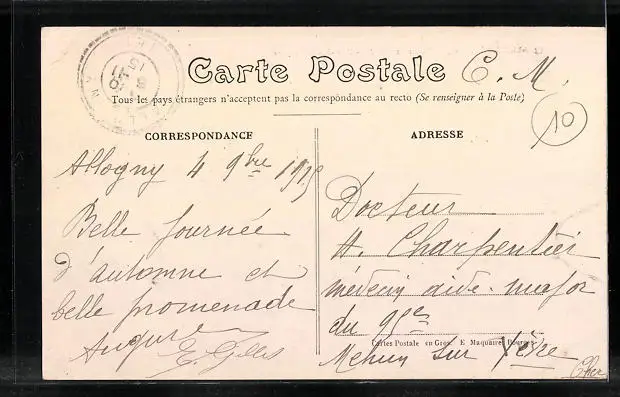 Carte Postale C. M.
Tous les pays étrangers n'acceptent pas la correspondance au recto (Se renseigner à la Poste)
10
CORRESPONDANCE
Allogny 4 9bre
Belle Journée
d'automne et
belle promenade
E.
ADRESSE
Docteur
H. Charpentier
médecin aide-major
du 95e
Cartes Postale en Gros. E Maquaire Bourges
Mehun sur Yèvre
Cher